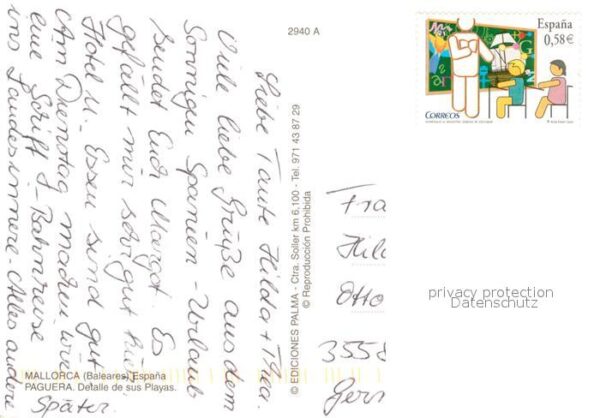 2940 A
Liebe Tante Hilda + Thea.
Viele liebe Grüße aus dem
Sonnigen Spanien - Urlaub
sendet Euch Margot. Es
gefällt mir sehr gut hier,
Hotel u. Essen sind gut
Am Dienstag machen wir
eine Schiff + Bahnreise
ins Landesinnere - Alles andere
später.
MALLORCA (Baleares) España
PAGUERA. Detalle de sus Playas.
© EDICIONES PALMA - Ctra. Soller km 6,100 - Tel. 971 43 87 29
© Reproducción Prohibida
España
0,58€
CORREOS
Fra
Hild
Otto
3558
Gern
privacy protection
Datenschutz